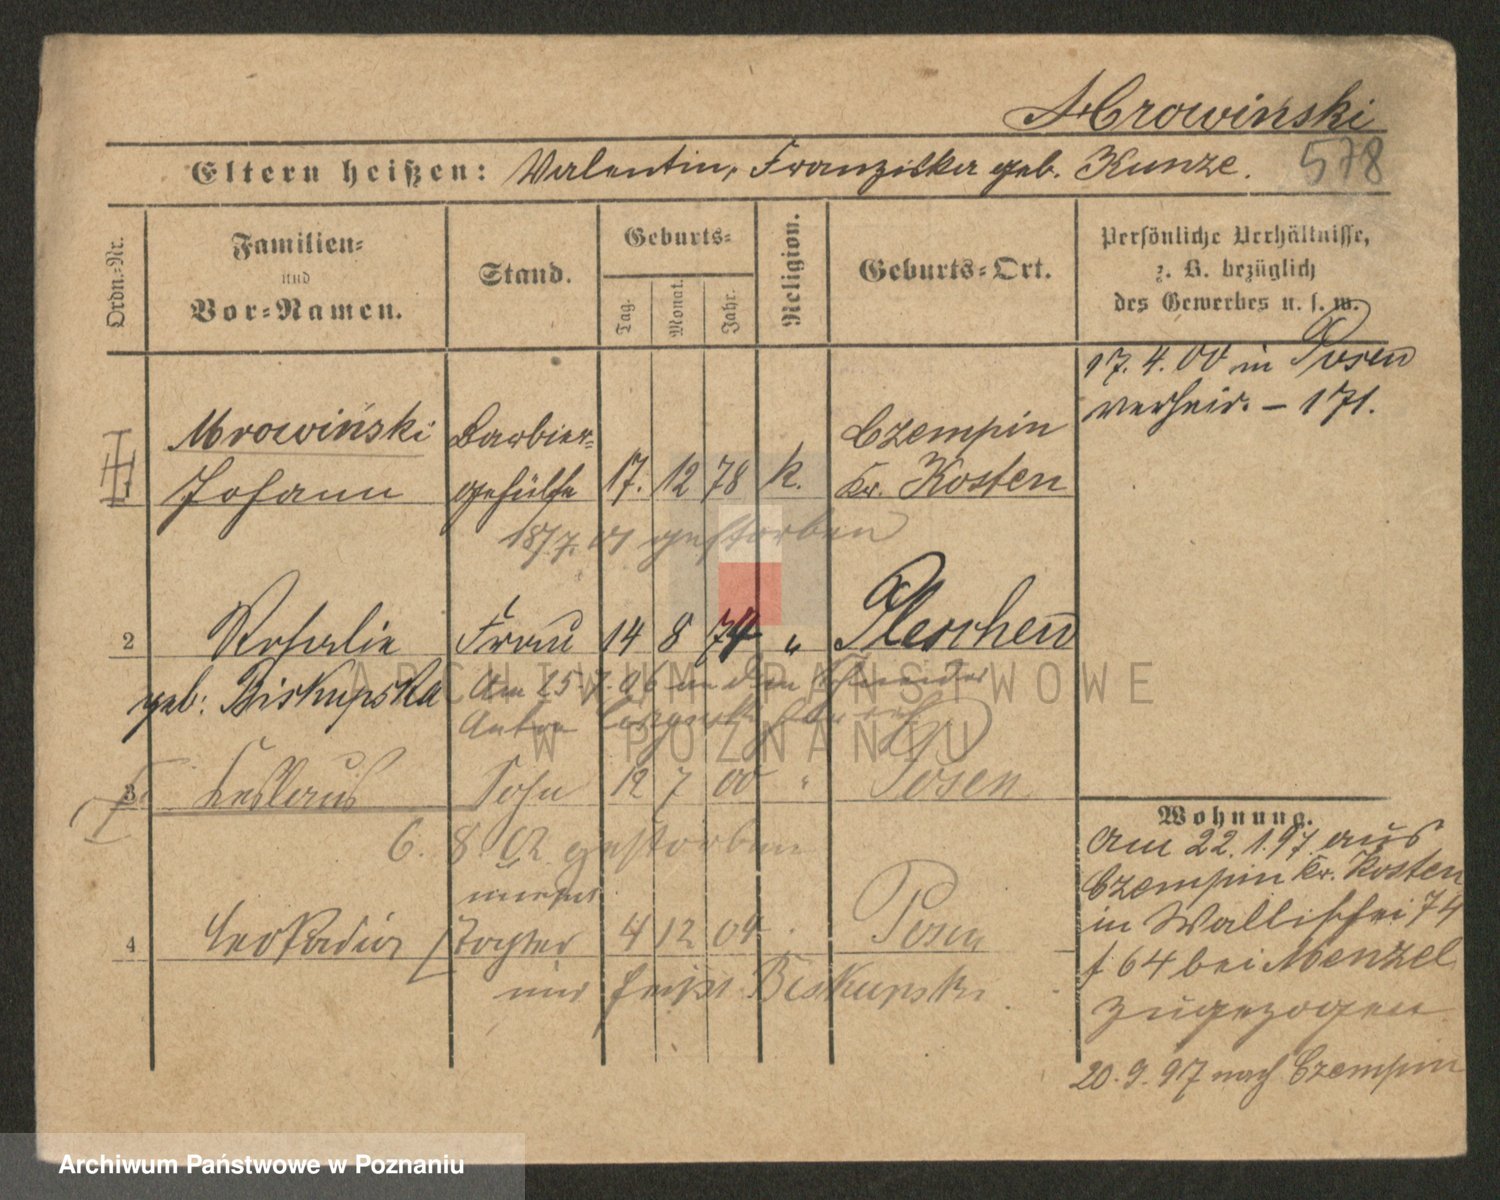 Mrowiński
Eltern heißen: Valentin, Franziska geb. Kunze.
578
Ordn.-Nr.
Familien-
und
Vor-Namen.
Stand.
Geburts-
Tag.
Monat.
Jahr.
Religion.
Geburts-Ort.
Persönliche Verhältnisse,
z. B. bezüglich
des Gewerbes u. s. w.
17. 4. 00 in Posen
verheir. – 171.
Mrowiński Barbier- Czempin
Johann gehülfe 17. 12 78 k. Kr. Kosten
18/7. 01 gestorben
2 Rosalie Frau 14 8 74 " Pleschen
geb: Biskupska
Am 25 7. 06 an den Schneider
Anton
3 Ceslaus Sohn 12 7 00 " Posen
6. 8. 02 gestorben
unehel
4 Leokadia Tochter 4 12 04 Posen
und heißt Biskupski.
Wohnung.
Am 22. 1. 97. aus
Czempin Kr. Kosten
in Wallischei 74
f 64 bei Menzel
zugezogen
20. 9. 97 nach Czempin
ARCHIWUM PAŃSTWOWE
W POZNANIU
Archiwum Państwowe w Poznaniu